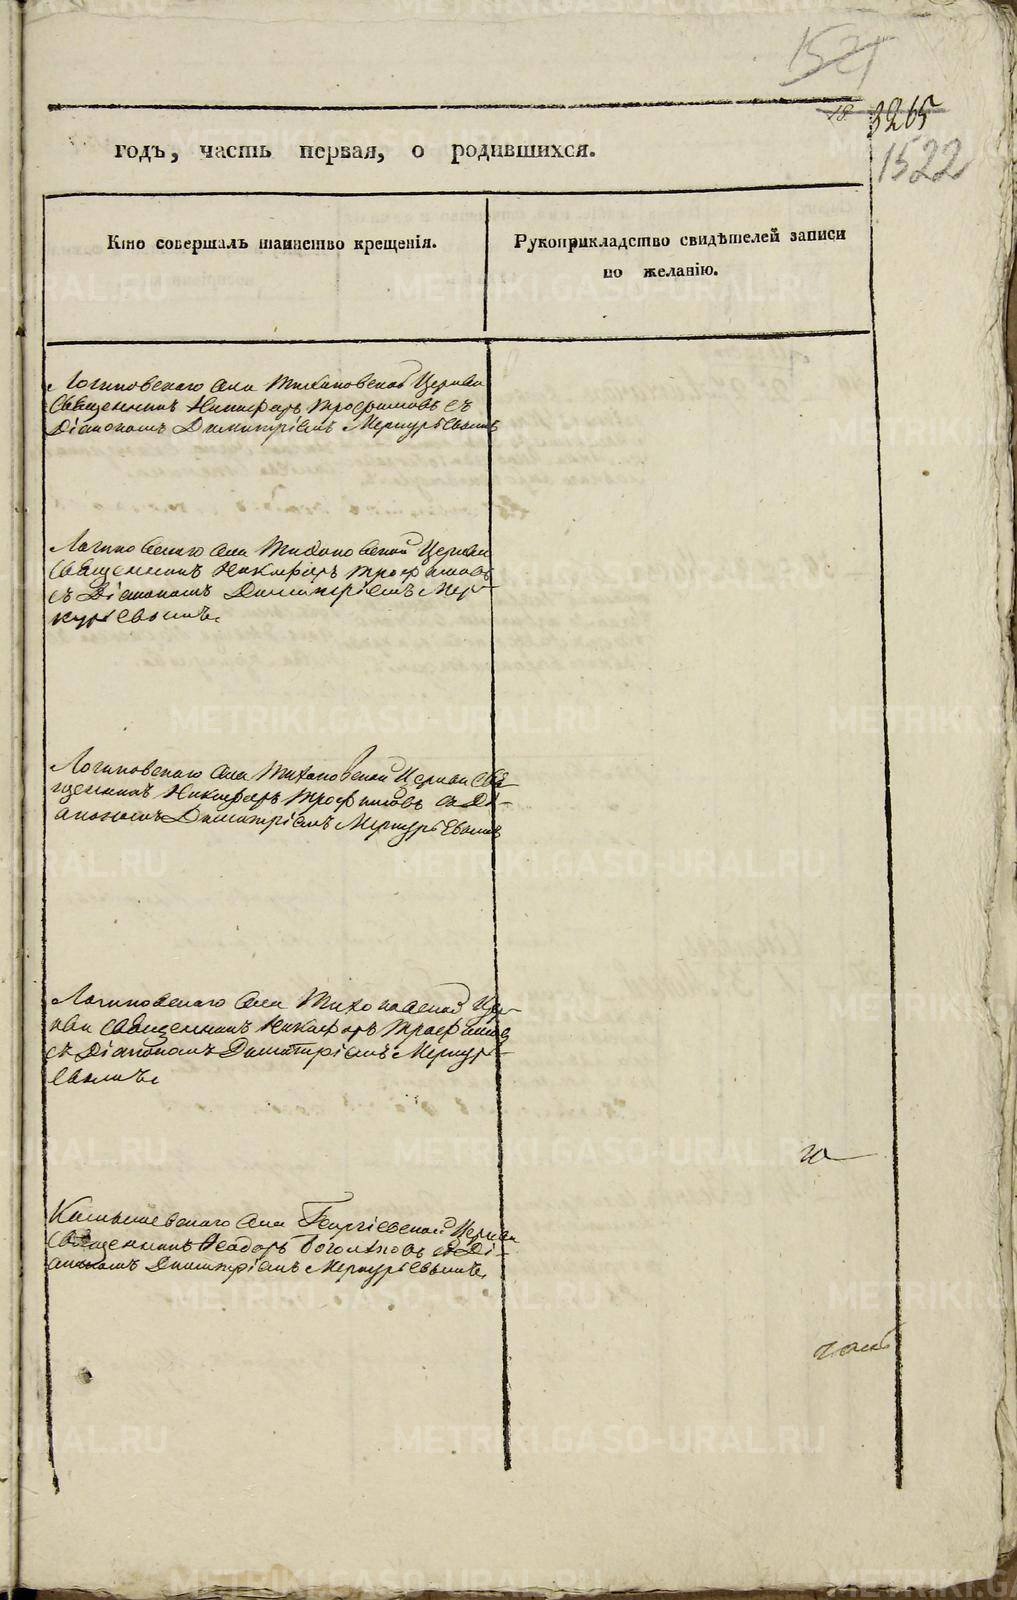 1521
18
3265
1522
годъ, часть первая, о родившихся.
Кто совершалъ таинство крещенія.
Рукоприкладство свидѣтелей записи
по желанію.
Логиновскаго села Тихоновской Церкви
Священникъ Никифоръ Трофимовъ съ
Діакономъ Димитріемъ Меркурьевымъ
Логиновскаго села Тихоновской Церкви
Священникъ Никифоръ Трофимовъ
съ Діакономъ Димитріемъ Мер-
курьевымъ.
Логиновскаго села Тихоновской Церкви Свя-
щенникъ Никифоръ Трофимовъ съ Ді-
акономъ Димитріемъ Меркурьевымъ
Логиновскаго села Тихоновской Цер-
кви Священникъ Никифоръ Трофимовъ
съ Діакономъ Димитріемъ Меркурь-
евымъ.
Камышевскаго села Георгіевской Церкви
Священникъ Феодоръ Боголѣповъ съ Ді-
акономъ Димитріемъ Меркурьевымъ.
METRIKI.GASO-URAL.RU